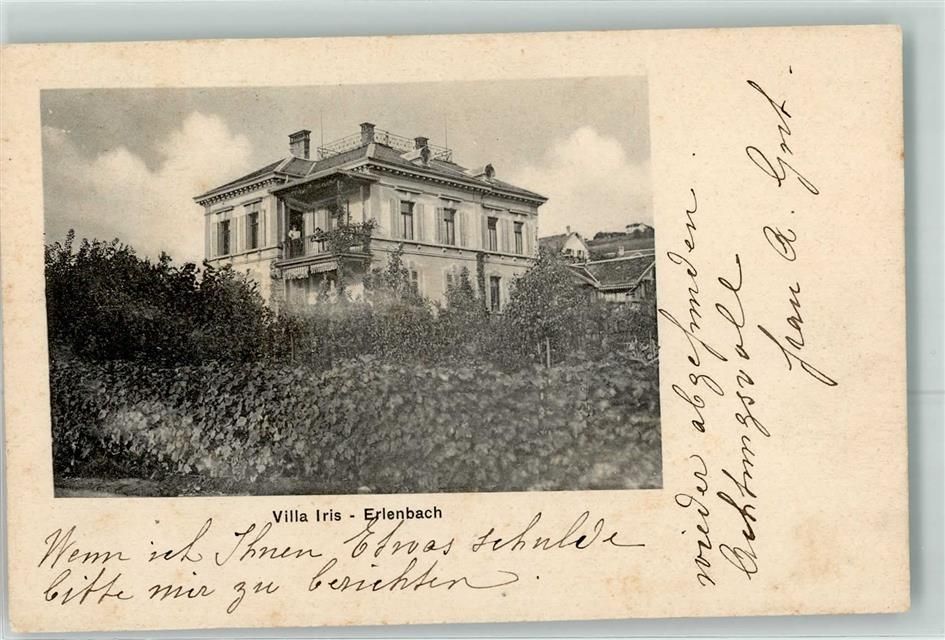 Villa Iris - Erlenbach
Wenn ich Ihnen Etwas schulde
bitte mir zu berichten.
wieder abgefunden.
Achtungsvoll
frau A.